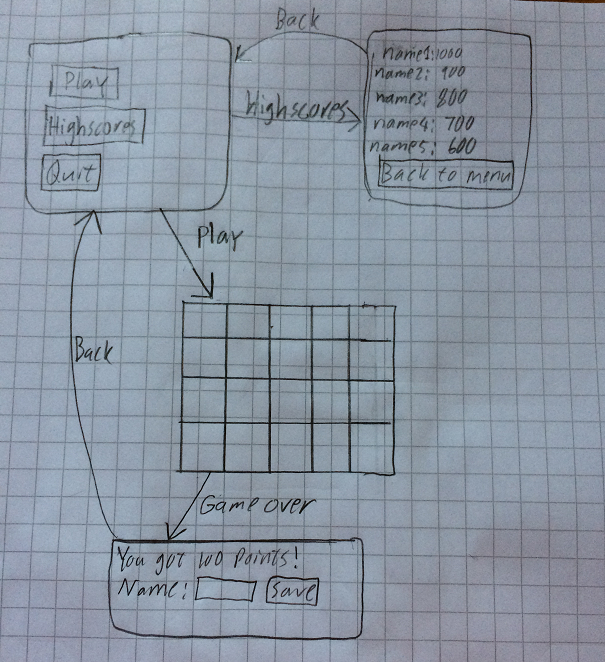 Back
Play
Highscores
Quit
Highscores
name1:1000
name2: 900
name3: 800
name4: 700
name5: 600
Back to menu
Play
Back
Game over
You got 100 Points!
Name: Save